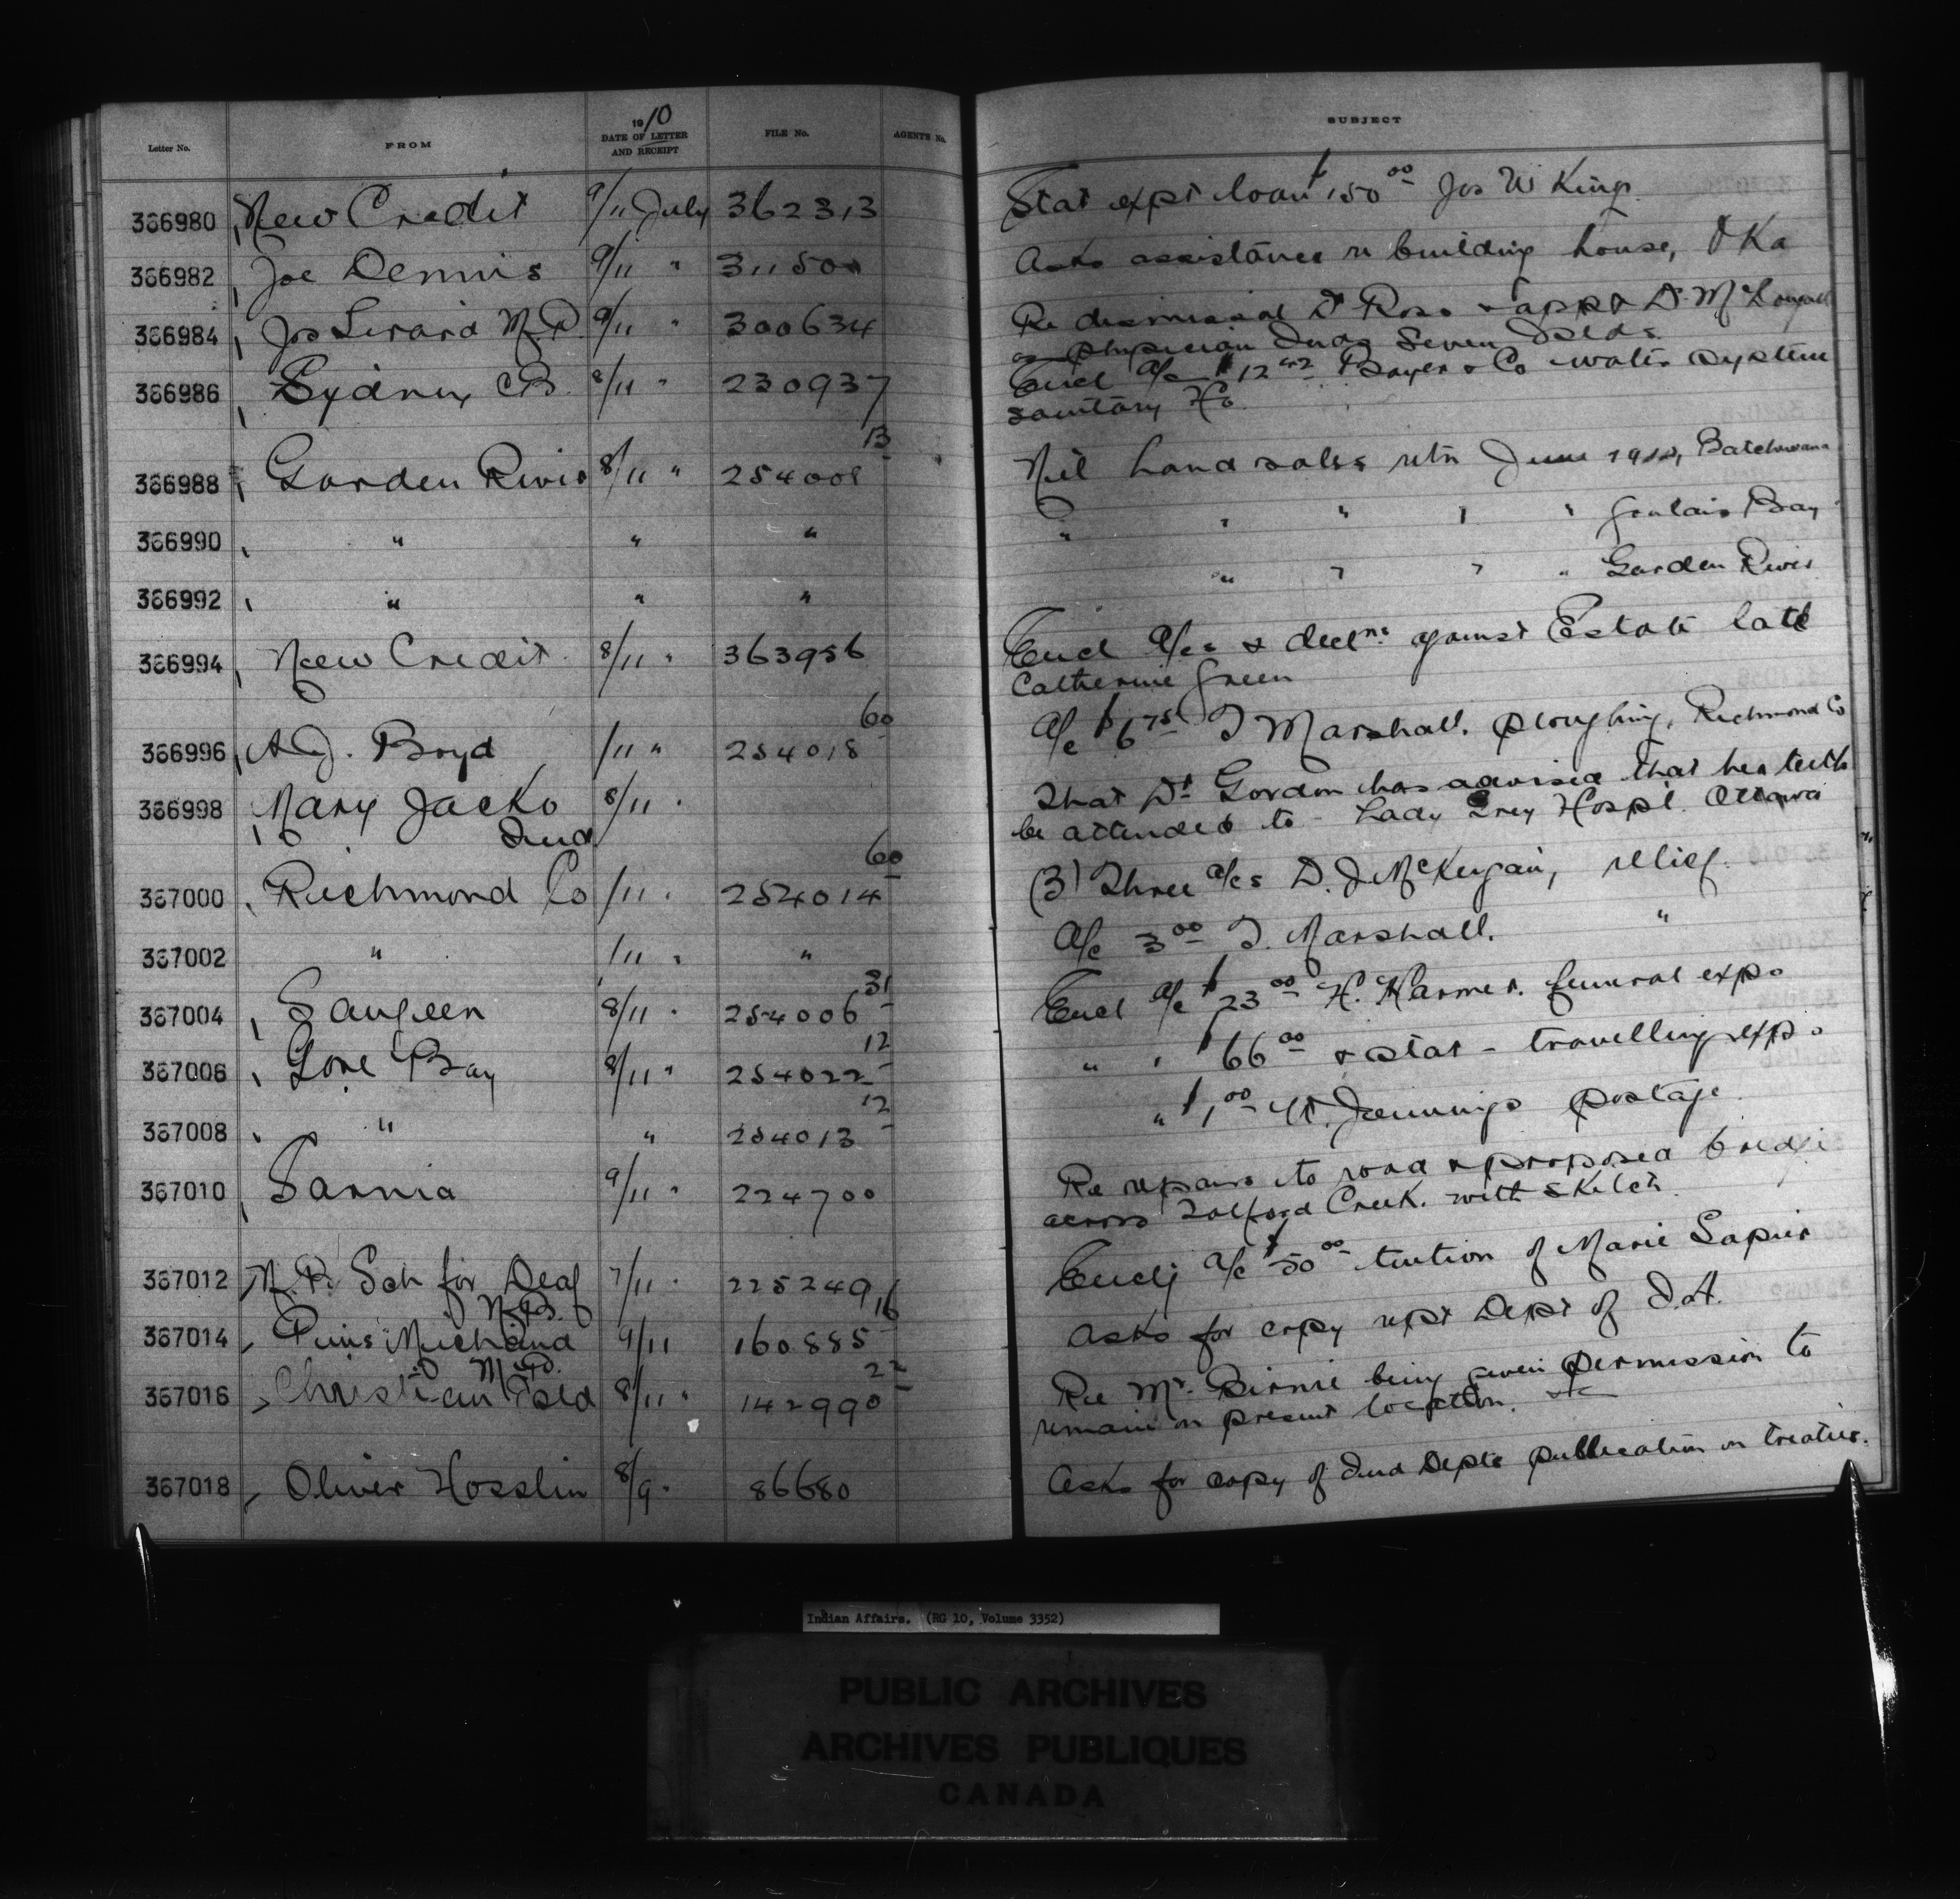 Letter No. FROM 1910 DATE OF LETTER AND RECEIPT FILE No. AGENTS No. SUBJECT
366980 New Credit 9/11 July 362313 Stat expt loan $150 00 Jos W King
366982 Joe Dennis 9/11 " 311500 Asks assistance re building house, OKa
366984 Jos Girard M.P. 9/11 " 300634 Re dismissal Dr Ross & appt Dr McDougall
as physician Inds Seven Islds
366986 Sydney CB 8/11 " 230937 Encl a/c $12 42 Bayer & Co water system
sanitary Ho
366988 Garden River 8/11 " 254008 13 Nil land sales retn June 1910, Batchewana
366990 " " " " " " " " Goulais Bay
366992 " " " " " " " Garden River
366994 New Credit 8/11 " 363956 Encl a/cs & decln. against Estate late
Catherine Green
366996 A.J. Boyd /11 " 254018 60 a/c $6 75 T Marshall. ploughing, Richmond Co
366998 Mary Jacko 8/11 " That Dr Gordon has advised that her teeth
Ind be attended to - Lady Grey Hospl. Ottawa
367000 Richmond Co /11 " 254014 60 (3) Three a/cs D. J McKeigan, relief
367002 " /11 " " a/c 3 00 T. Marshall. "
367004 Saugeen 8/11 " 254006 31 Encl a/c $23 00 H. Harmer. funeral exp.
367006 Gore Bay 8/11 " 254022 12 " " $66 00 & stat - travelling exp.
367008 " " 254013 12 " $1 00 W. Jennings postage
367010 Sarnia 9/11 " 224700 Re repairs to road & proposed bridge
across Talford Creek. with sketch
367012 Sch for Deaf 7/11 " 225249 Enclg a/c $50 00 tuition of Marie Sapier
N.B.
367014 Pius Michaud 9/11 160885 16 Asks for copy rept Dept of I.A.
M.P.
367016 Christian Isld 8/11 " 142990 22 Re Mr. Birnie being given permission to
remain on present location.
367018 Oliver Hosslin 8/9 " 86680 Asks for copy of Ind Depts publication on treaties.
Indian Affairs. (RG 10, Volume 3352)
PUBLIC ARCHIVES
ARCHIVES PUBLIQUES
CANADA